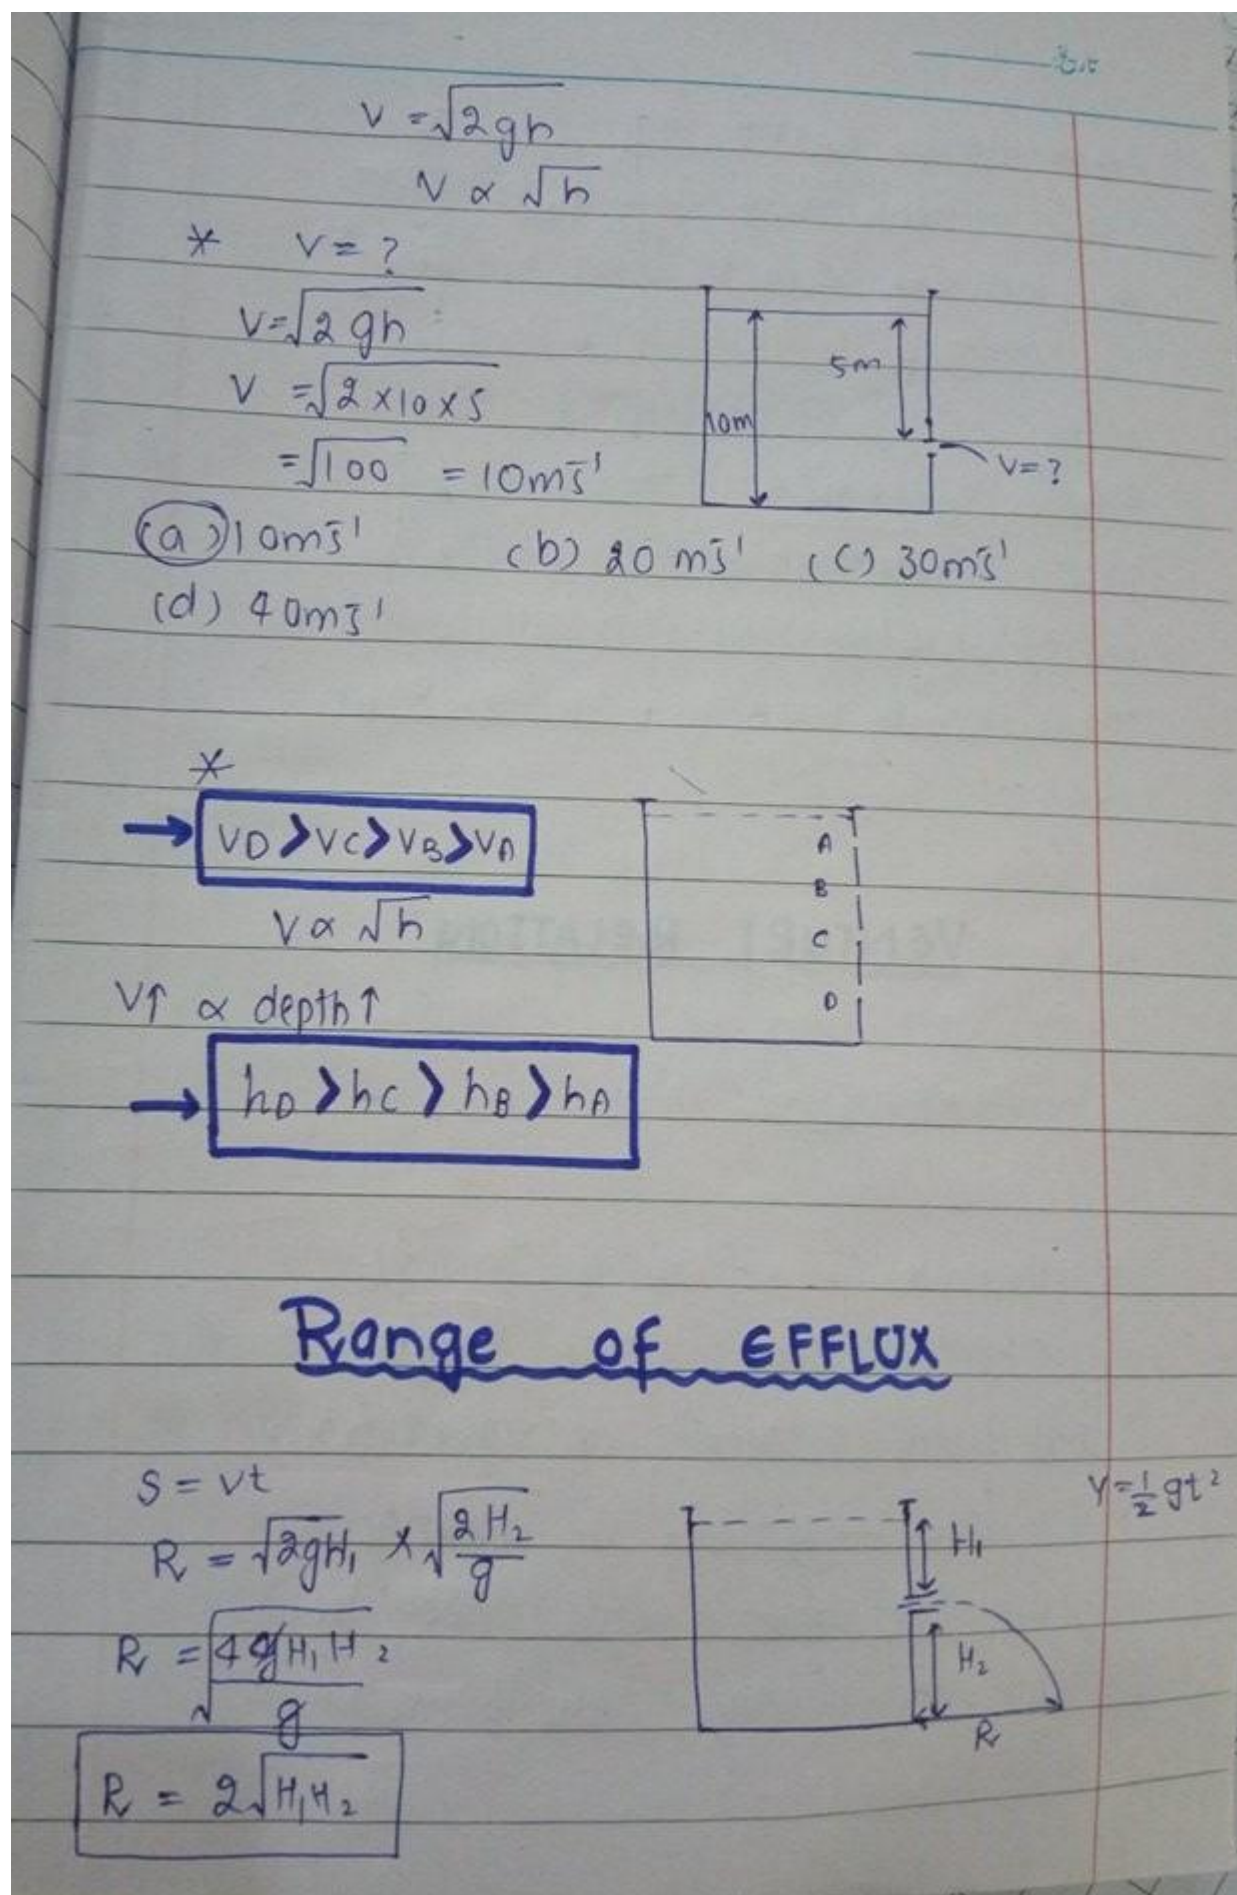 V = √2gh
V ∝ √h
* V = ?
V = √2gh
V = √2×10×5
= √100 = 10ms⁻¹
10m
5m
V = ?
(a) 10ms⁻¹ (b) 20 ms⁻¹ (c) 30ms⁻¹
(d) 40ms⁻¹
*
→ VD > VC > VB > VA
V ∝ √h
V↑ ∝ depth↑
→ hD > hC > hB > hA
A
B
C
D
Range of EFFLUX
S = vt
Y = 1/2 gt²
R = √2gH₁ × √2H₂/g
R = √4gH₁H₂/g
R = 2√H₁H₂
H₁
H₂
R